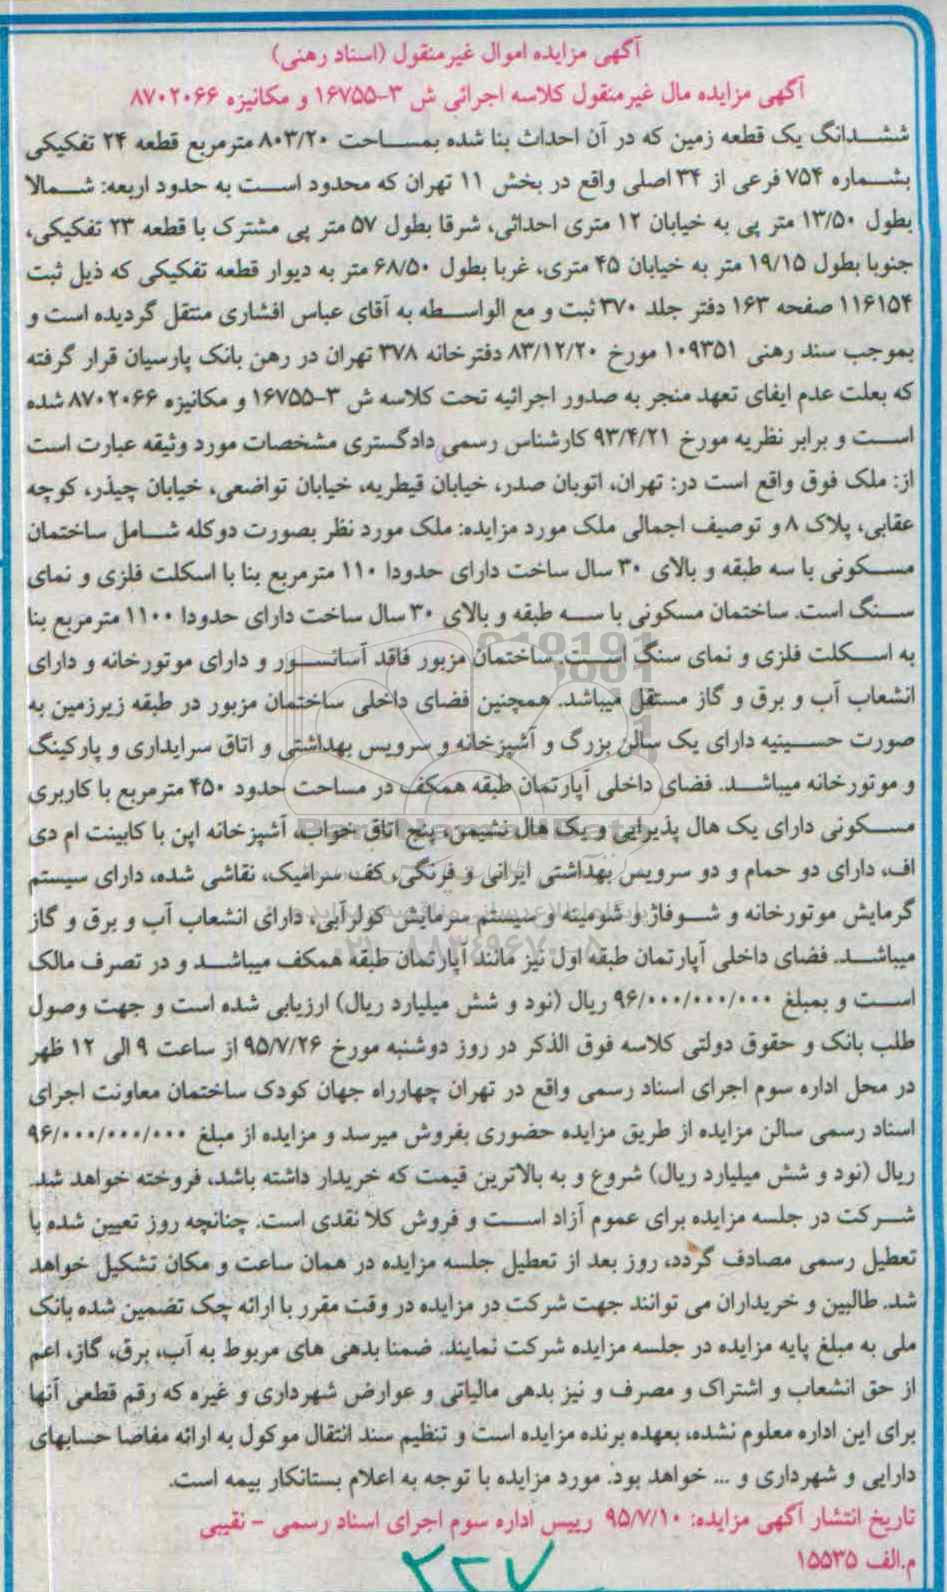 آگهی مزایده اموال غیرمنقول (اسناد رهنی)
آگهی مزایده مال غیرمنقول کلاسه اجرائی ش ۳-۱۶۷۵۵ و مکانیزه ۸۷۰۲۰۶۶
ششدانگ یک قطعه زمین که در آن احداث بنا شده بمساحت ۸۰۳/۲۰ مترمربع قطعه ۲۴ تفکیکی
بشماره ۷۵۴ فرعی از ۳۴ اصلی واقع در بخش ۱۱ تهران که محدود است به حدود اربعه: شمالا
بطول ۱۳/۵۰ متر پی به خیابان ۱۲ متری احداثی، شرقا بطول ۵۷ متر پی مشترک با قطعه ۲۳ تفکیکی،
جنوبا بطول ۱۹/۱۵ متر به خیابان ۴۵ متری، غربا بطول ۶۸/۵۰ متر به دیوار قطعه تفکیکی که ذیل ثبت
۱۱۶۱۵۴ صفحه ۱۶۳ دفتر جلد ۳۷۰ ثبت و مع الواسطه به آقای عباس افشاری منتقل گردیده است و
بموجب سند رهنی ۱۰۹۳۵۱ مورخ ۸۳/۱۲/۲۰ دفترخانه ۳۷۸ تهران در رهن بانک پارسیان قرار گرفته
که بعلت عدم ایفای تعهد منجر به صدور اجرائیه تحت کلاسه ش ۳-۱۶۷۵۵ و مکانیزه ۸۷۰۲۰۶۶ شده
است و برابر نظریه مورخ ۹۳/۴/۲۱ کارشناس رسمی دادگستری مشخصات مورد وثیقه عبارت است
از: ملک فوق واقع است در: تهران، اتوبان صدر، خیابان قیطریه، خیابان تواضعی، خیابان چیذر، کوچه
عقابی، پلاک ۸ و توصیف اجمالی ملک مورد مزایده: ملک مورد نظر بصورت دوکله شامل ساختمان
مسکونی با سه طبقه و بالای ۳۰ سال ساخت دارای حدودا ۱۱۰ مترمربع بنا با اسکلت فلزی و نمای
سنگ است. ساختمان مسکونی با سه طبقه و بالای ۳۰ سال ساخت دارای حدودا ۱۱۰۰ مترمربع بنا
به اسکلت فلزی و نمای سنگ است. ساختمان مزبور فاقد آسانسور و دارای موتورخانه و دارای
انشعاب آب و برق و گاز مستقل میباشد. همچنین فضای داخلی ساختمان مزبور در طبقه زیرزمین به
صورت حسینیه دارای یک سالن بزرگ و آشپزخانه و سرویس بهداشتی و اتاق سرایداری و پارکینگ
و موتورخانه میباشد. فضای داخلی آپارتمان طبقه همکف در مساحت حدود ۴۵۰ مترمربع با کاربری
مسکونی دارای یک هال پذیرایی و یک هال نشیمن، پنج اتاق خواب، آشپزخانه اپن با کابینت ام دی
اف، دارای دو حمام و دو سرویس بهداشتی ایرانی و فرنگی، کف سرامیک، نقاشی شده، دارای سیستم
گرمایش موتورخانه و شوفاژ و شومینه و سیستم سرمایش کولرآبی، دارای انشعاب آب و برق و گاز
میباشد. فضای داخلی آپارتمان طبقه اول نیز مانند آپارتمان طبقه همکف میباشد و در تصرف مالک
است و بمبلغ ۹۶/۰۰۰/۰۰۰/۰۰۰ ریال (نود و شش میلیارد ریال) ارزیابی شده است و جهت وصول
طلب بانک و حقوق دولتی کلاسه فوق الذکر در روز دوشنبه مورخ ۹۵/۷/۲۶ از ساعت ۹ الی ۱۲ ظهر
در محل اداره سوم اجرای اسناد رسمی واقع در تهران چهارراه جهان کودک ساختمان معاونت اجرای
اسناد رسمی سالن مزایده از طریق مزایده حضوری بفروش میرسد و مزایده از مبلغ ۹۶/۰۰۰/۰۰۰/۰۰۰
ریال (نود و شش میلیارد ریال) شروع و به بالاترین قیمت که خریدار داشته باشد، فروخته خواهد شد.
شرکت در جلسه مزایده برای عموم آزاد است و فروش کلا نقدی است. چنانچه روز تعیین شده با
تعطیل رسمی مصادف گردد، روز بعد از تعطیل جلسه مزایده در همان ساعت و مکان تشکیل خواهد
شد. طالبین و خریداران می توانند جهت شرکت در مزایده در وقت مقرر با ارائه چک تضمین شده بانک
ملی به مبلغ پایه مزایده در جلسه مزایده شرکت نمایند. ضمنا بدهی های مربوط به آب، برق، گاز، اعم
از حق انشعاب و اشتراک و مصرف و نیز بدهی مالیاتی و عوارض شهرداری و غیره که رقم قطعی آنها
برای این اداره معلوم نشده، بعهده برنده مزایده است و تنظیم سند انتقال موکول به ارائه مفاصا حسابهای
دارایی و شهرداری و ... خواهد بود. مورد مزایده با توجه به اعلام بستانکار بیمه است.
تاریخ انتشار آگهی مزایده: ۹۵/۷/۱۰ رییس اداره سوم اجرای اسناد رسمی - نقیبی
م.الف ۱۵۵۳۵
۲۲۷